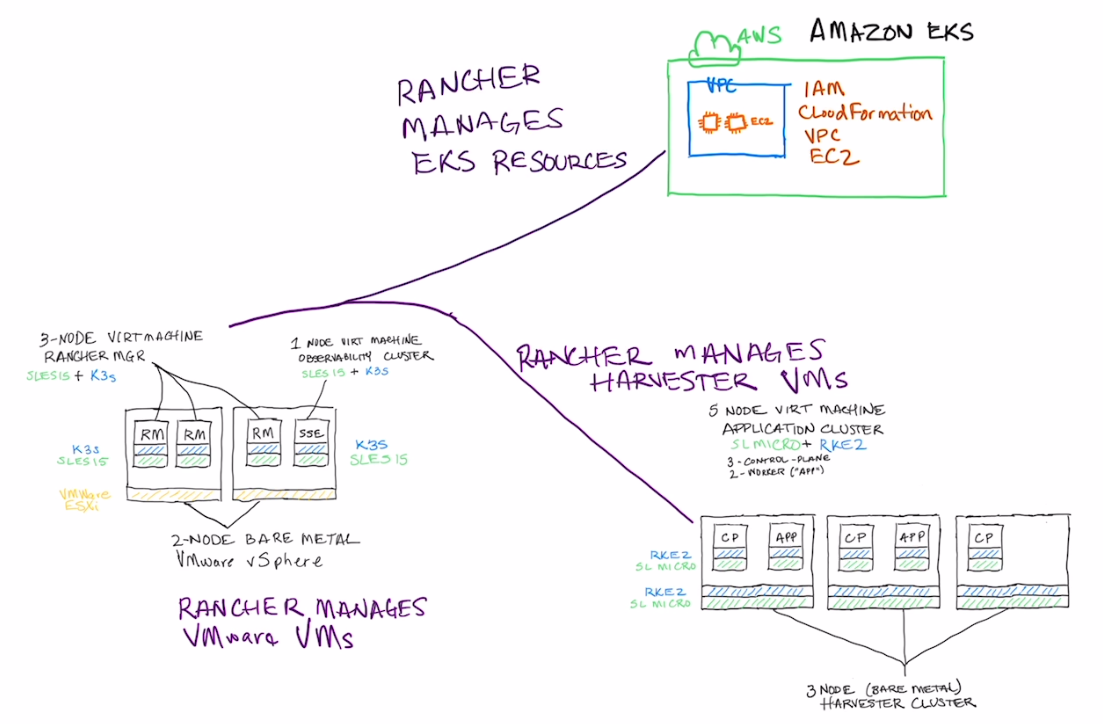 AWS
AMAZON EKS
VPC
EC2
IAM
CloudFormation
VPC
EC2
RANCHER
MANAGES
EKS RESOURCES
3-NODE VIRT MACHINE
RANCHER MGR
SLES15 + K3s
1 NODE VIRT MACHINE
OBSERVABILITY CLUSTER
SLES 15 + K3S
RM RM
RM SSE
K3s
SLES15
K3S
SLES 15
VMWare
ESXi
2-NODE BARE METAL
VMware vSphere
RANCHER MANAGES
VMware VMs
RANCHER MANAGES
HARVESTER VMs
5 NODE VIRT MACHINE
APPLICATION CLUSTER
SL MICRO + RKE2
3-CONTROL-PLANE
2-WORKER ("APP")
CP APP
CP APP
CP
RKE2
SL MICRO
RKE2
SL MICRO
3 NODE (BARE METAL)
HARVESTER CLUSTER